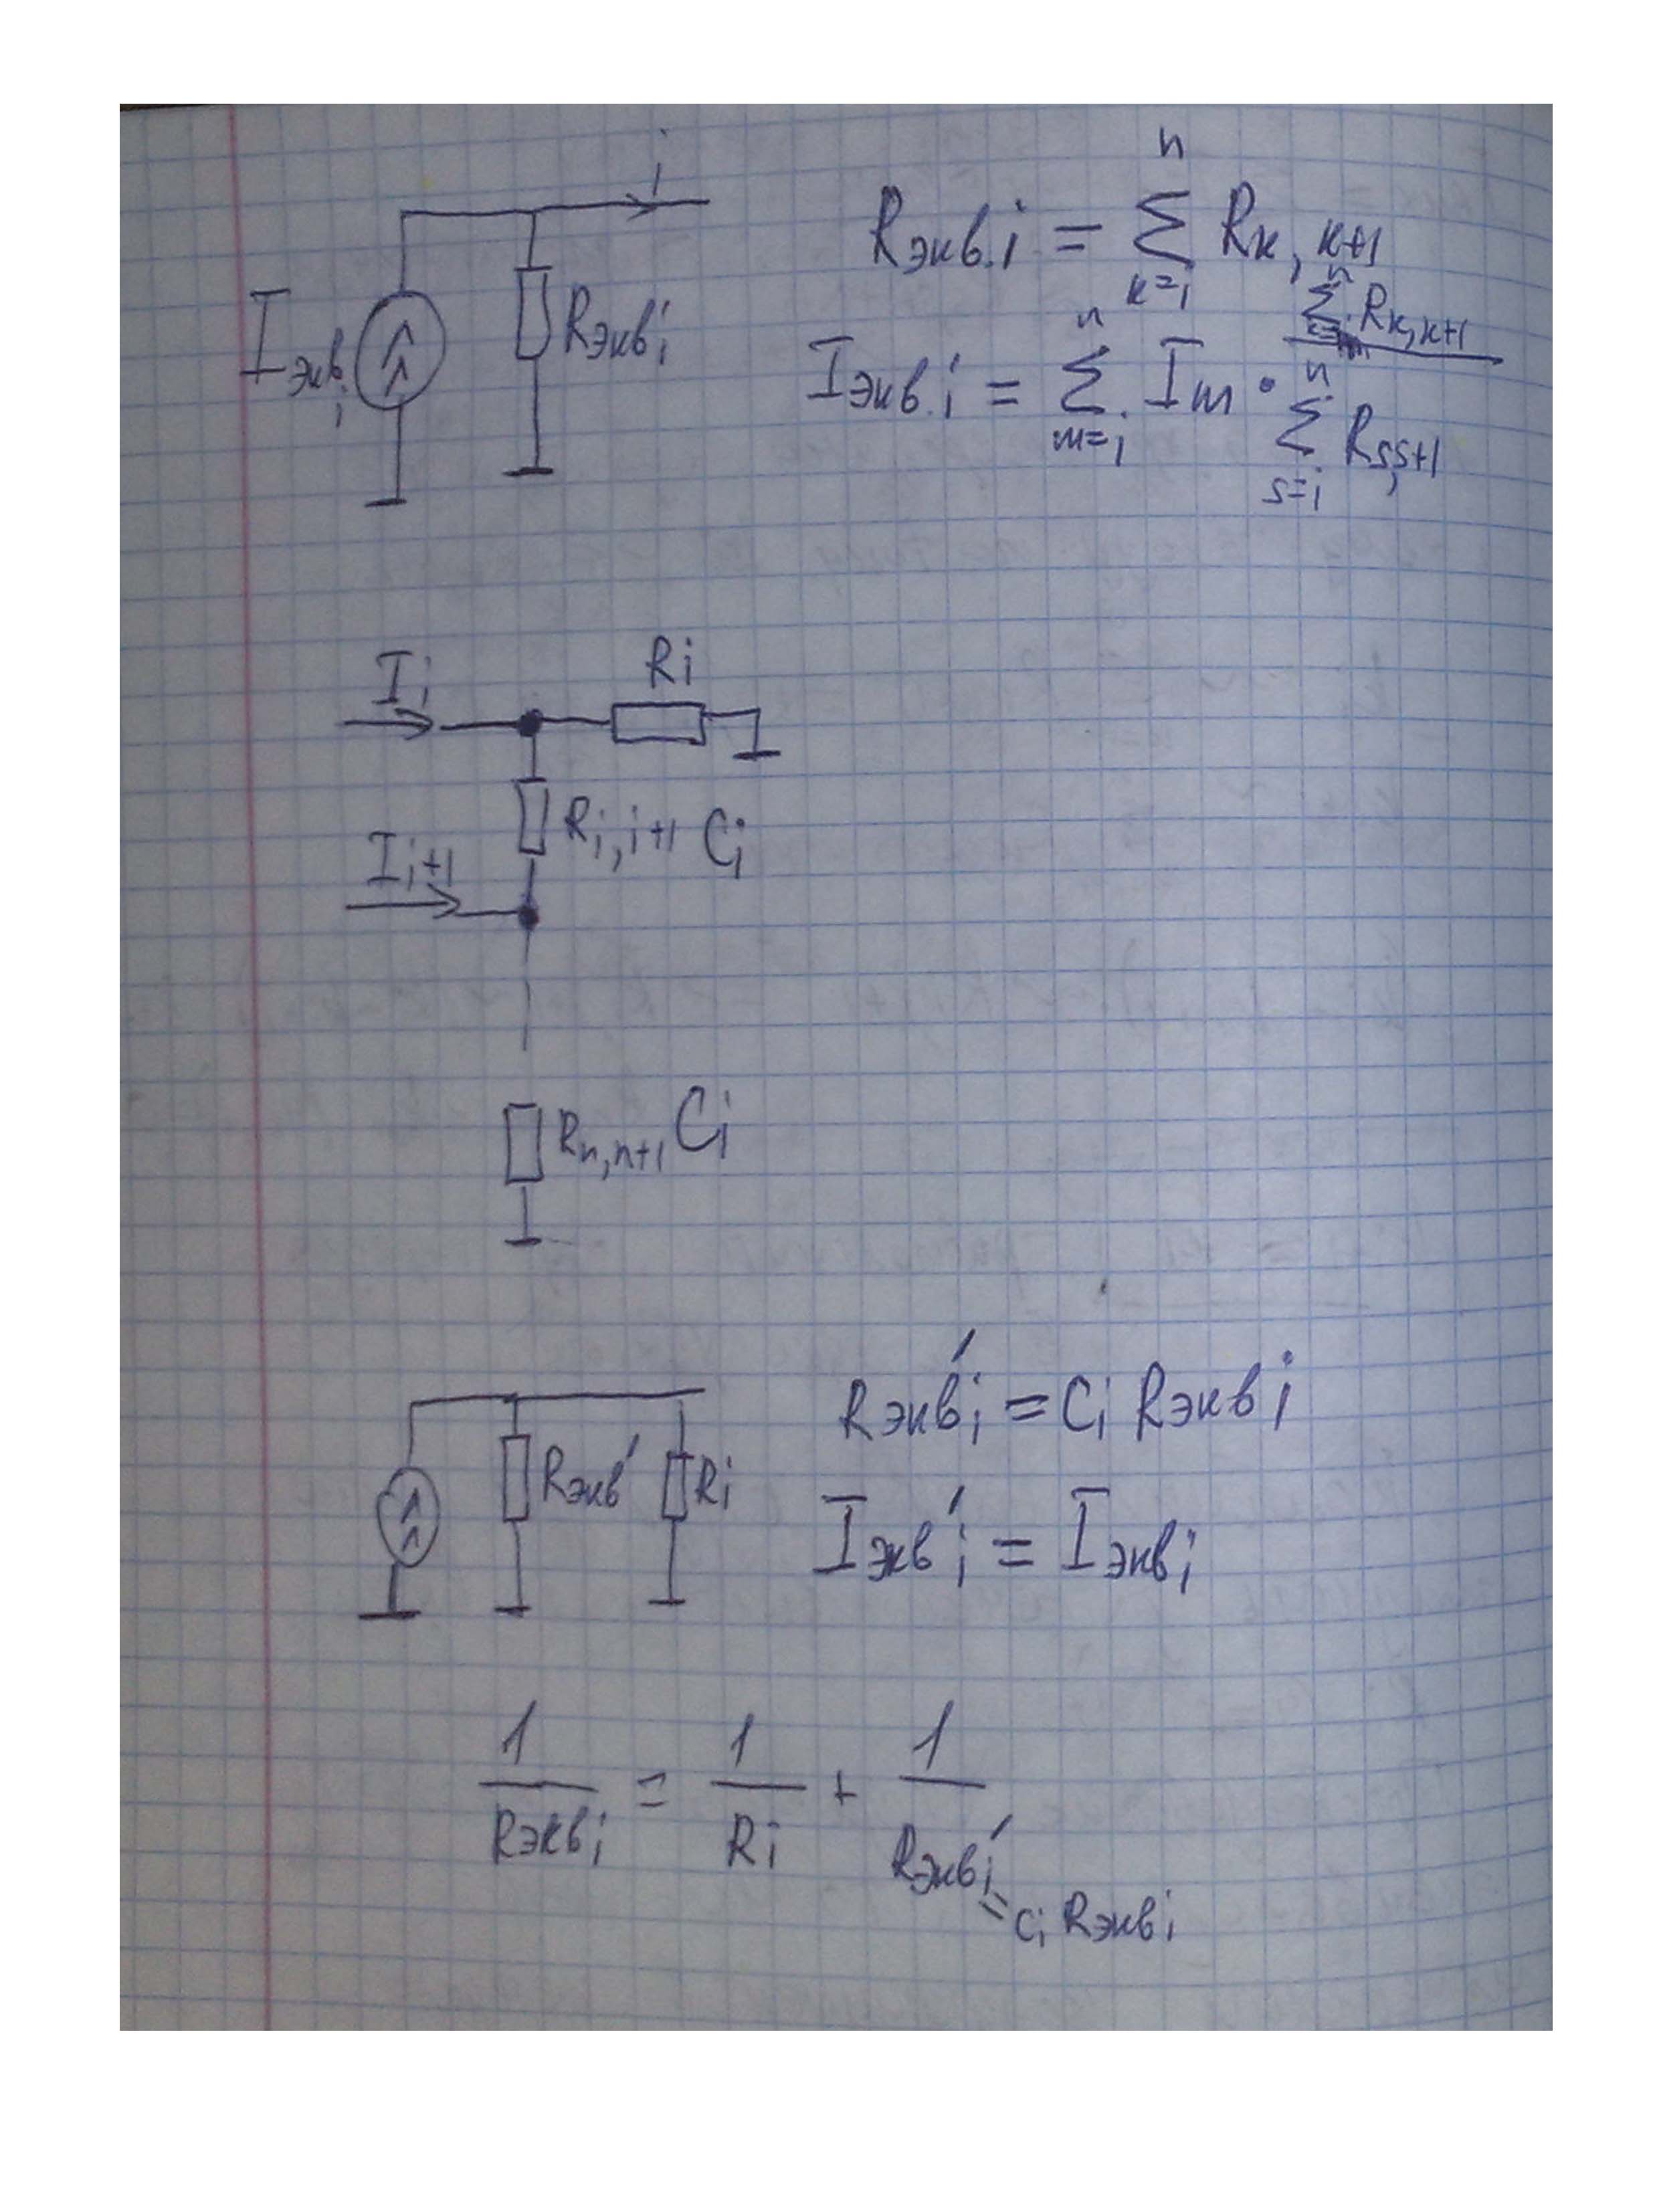 i
I экв i
R экв i
R экв. i = n Σ k=i R k, k+1
I экв. i = n Σ m=i I m · n Σ R k, k+1 / n Σ s=i R s,s+1
I i
R i
R i, i+1 C i
I i+1
R n, n+1 C i
R экв' i = C i R экв i
R экв'
R i
I экв' i = I экв i
1 / R экв i = 1 / R i + 1 / R экв' i
= C i R экв i